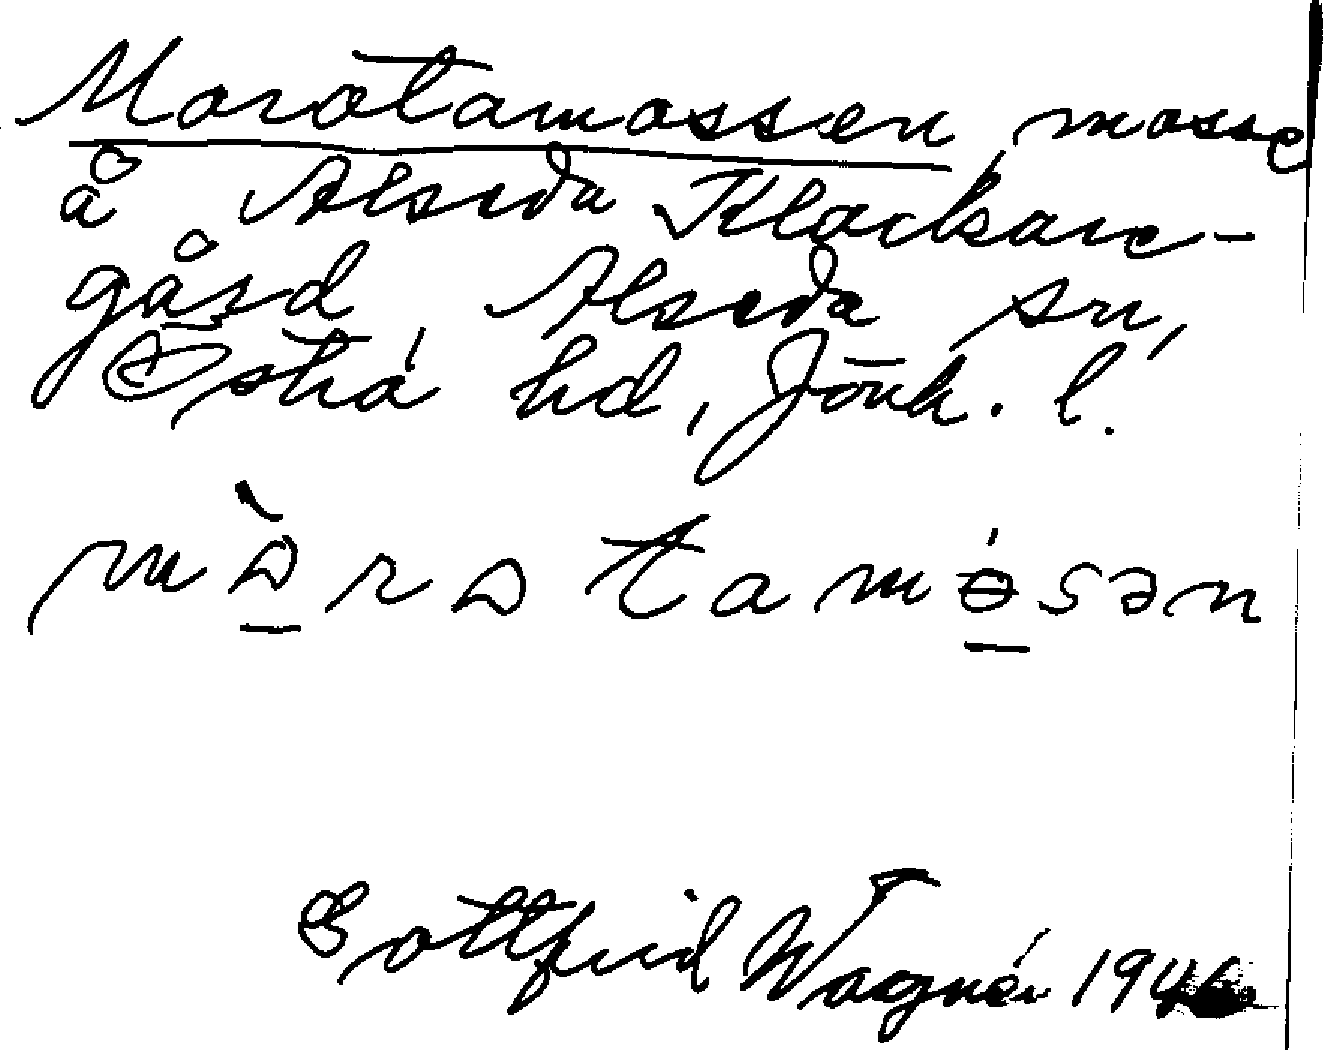 Morotamossen, mosse
å Alseda Klockare-
gård, Alseda sn,
Östra hd, Jönk. l.
mòrotamosən
Gottfrid Wagnér 1946